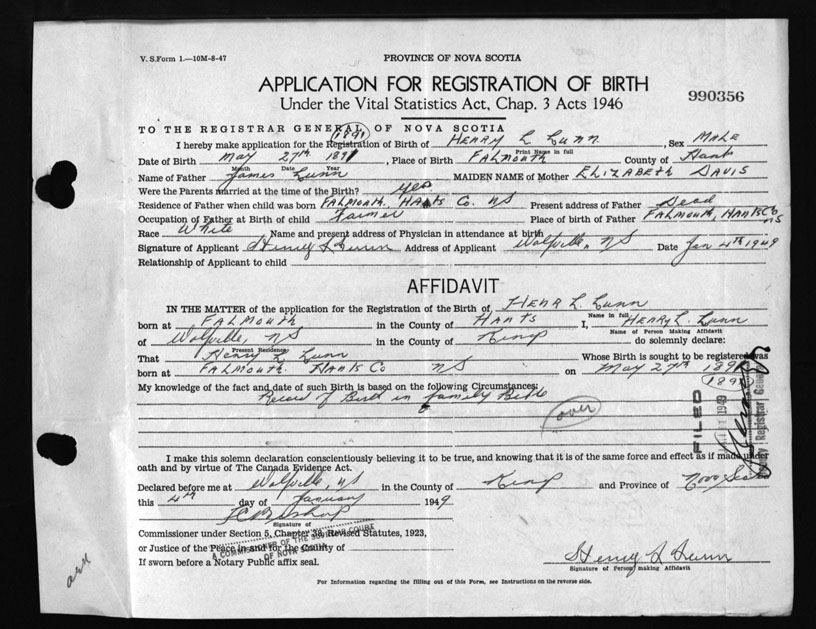 V. S. Form 1.—10M-8-47
PROVINCE OF NOVA SCOTIA
APPLICATION FOR REGISTRATION OF BIRTH
Under the Vital Statistics Act, Chap. 3 Acts 1946
990356
TO THE REGISTRAR GENERAL OF NOVA SCOTIA
I hereby make application for the Registration of Birth of HENRY L LUNN, Sex MALE
Print Name in full
Date of Birth May 27th 1891, Place of Birth FALMOUTH County of Hants
Month Date Year
Name of Father James Lunn MAIDEN NAME of Mother ELIZABETH DAVIS
Were the Parents married at the time of the Birth? yes
Residence of Father when child was born FALMOUTH, HANTS Co. NS Present address of Father Dead
Occupation of Father at Birth of child Farmer Place of birth of Father FALMOUTH, HANTS Co NS
Race White Name and present address of Physician in attendance at birth
Signature of Applicant Henry L Lunn Address of Applicant Wolfville, NS Date Jan 4th 1949
Relationship of Applicant to child
AFFIDAVIT
IN THE MATTER of the application for the Registration of the Birth of HENR L. LUNN
Name in full
born at FALMOUTH in the County of HANTS I, HENRY L. LUNN
Name of Person Making Affidavit
of Wolfville, NS in the County of Kings do solemnly declare:
Present Residence
That Henry L Lunn Whose Birth is sought to be registered was
born at FALMOUTH HANTS Co NS on May 27th 1891
(1891)
My knowledge of the fact and date of such Birth is based on the following Circumstances:
Record of Birth in family Bible
over
FILED
1949
Registrar General
I make this solemn declaration conscientiously believing it to be true, and knowing that it is of the same force and effect as if made under
oath and by virtue of The Canada Evidence Act.
Declared before me at Wolfville, NS in the County of Kings and Province of Nova Scotia
this 4th day of January 1949
Signature of
Commissioner under Section 5, Chapter 38, Revised Statutes, 1923,
or Justice of the Peace in and for the County of
A COMMISSIONER OF THE SUPREME COURT
OF NOVA SCOTIA
If sworn before a Notary Public affix seal.
Henry L Lunn
Signature of Person making Affidavit
For Information regarding the filling out of this Form, see Instructions on the reverse side.